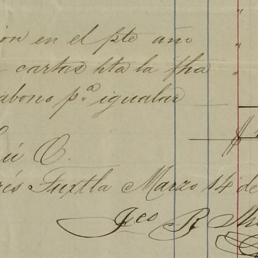 ion en el pte año
cartas hta la fha
abono pª igualar
S. E. ú O.
rés Tuxtla Marzo 14 de
Fco P.